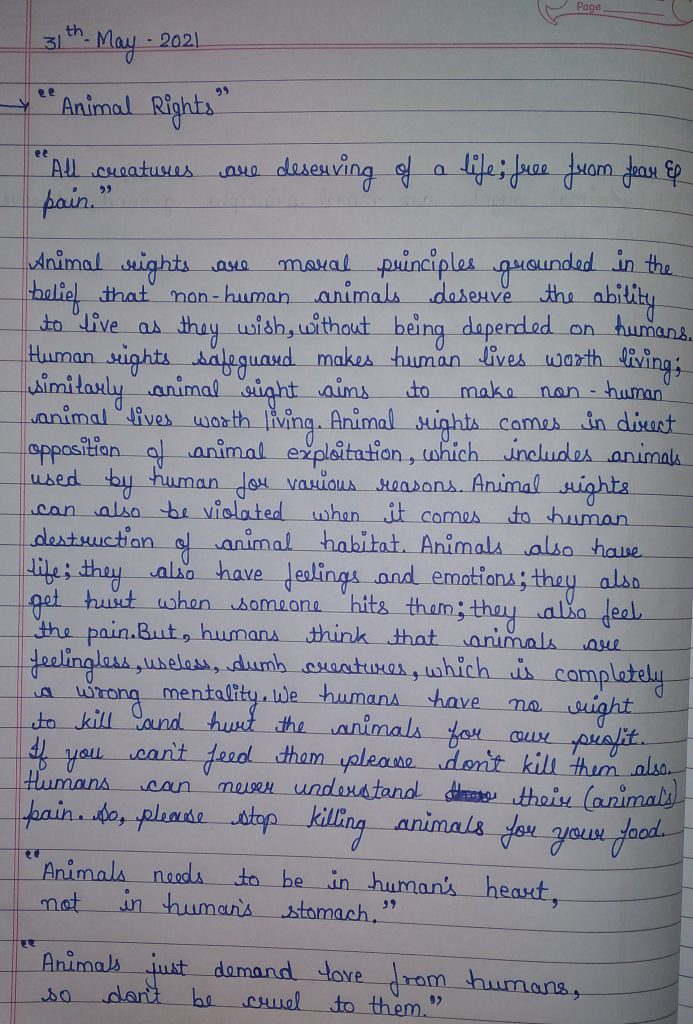 Page
31th - May - 2021
"Animal Rights"
"All creatures are deserving of a life; free from fear &
pain."
Animal rights are moral principles grounded in the
belief that non-human animals deserve the ability
to live as they wish, without being depended on humans.
Human rights safeguard makes human lives worth living;
similarly animal right aims to make non-human
animal lives worth living. Animal rights comes in direct
opposition of animal exploitation, which includes animals
used by human for various reasons. Animal rights
can also be violated when it comes to human
destruction of animal habitat. Animals also have
life; they also have feelings and emotions; they also
get hurt when someone hits them; they also feel
the pain. But, humans think that animals are
feelingless, useless, dumb creatures, which is completely
a wrong mentality. We humans have no right
to kill and hurt the animals for our profit.
If you can't feed them please don't kill them also.
Humans can never understand their (animal's)
pain. So, please stop killing animals for your food.
"Animals needs to be in human's heart,
not in human's stomach."
"Animals just demand love from humans,
so don't be cruel to them."